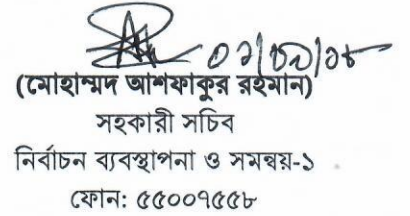 (মোহাম্মদ আশফাকুর রহমান)
সহকারী সচিব
নির্বাচন ব্যবস্থাপনা ও সমন্বয়-১
ফোন: ৫৫০০৭৫৫৮